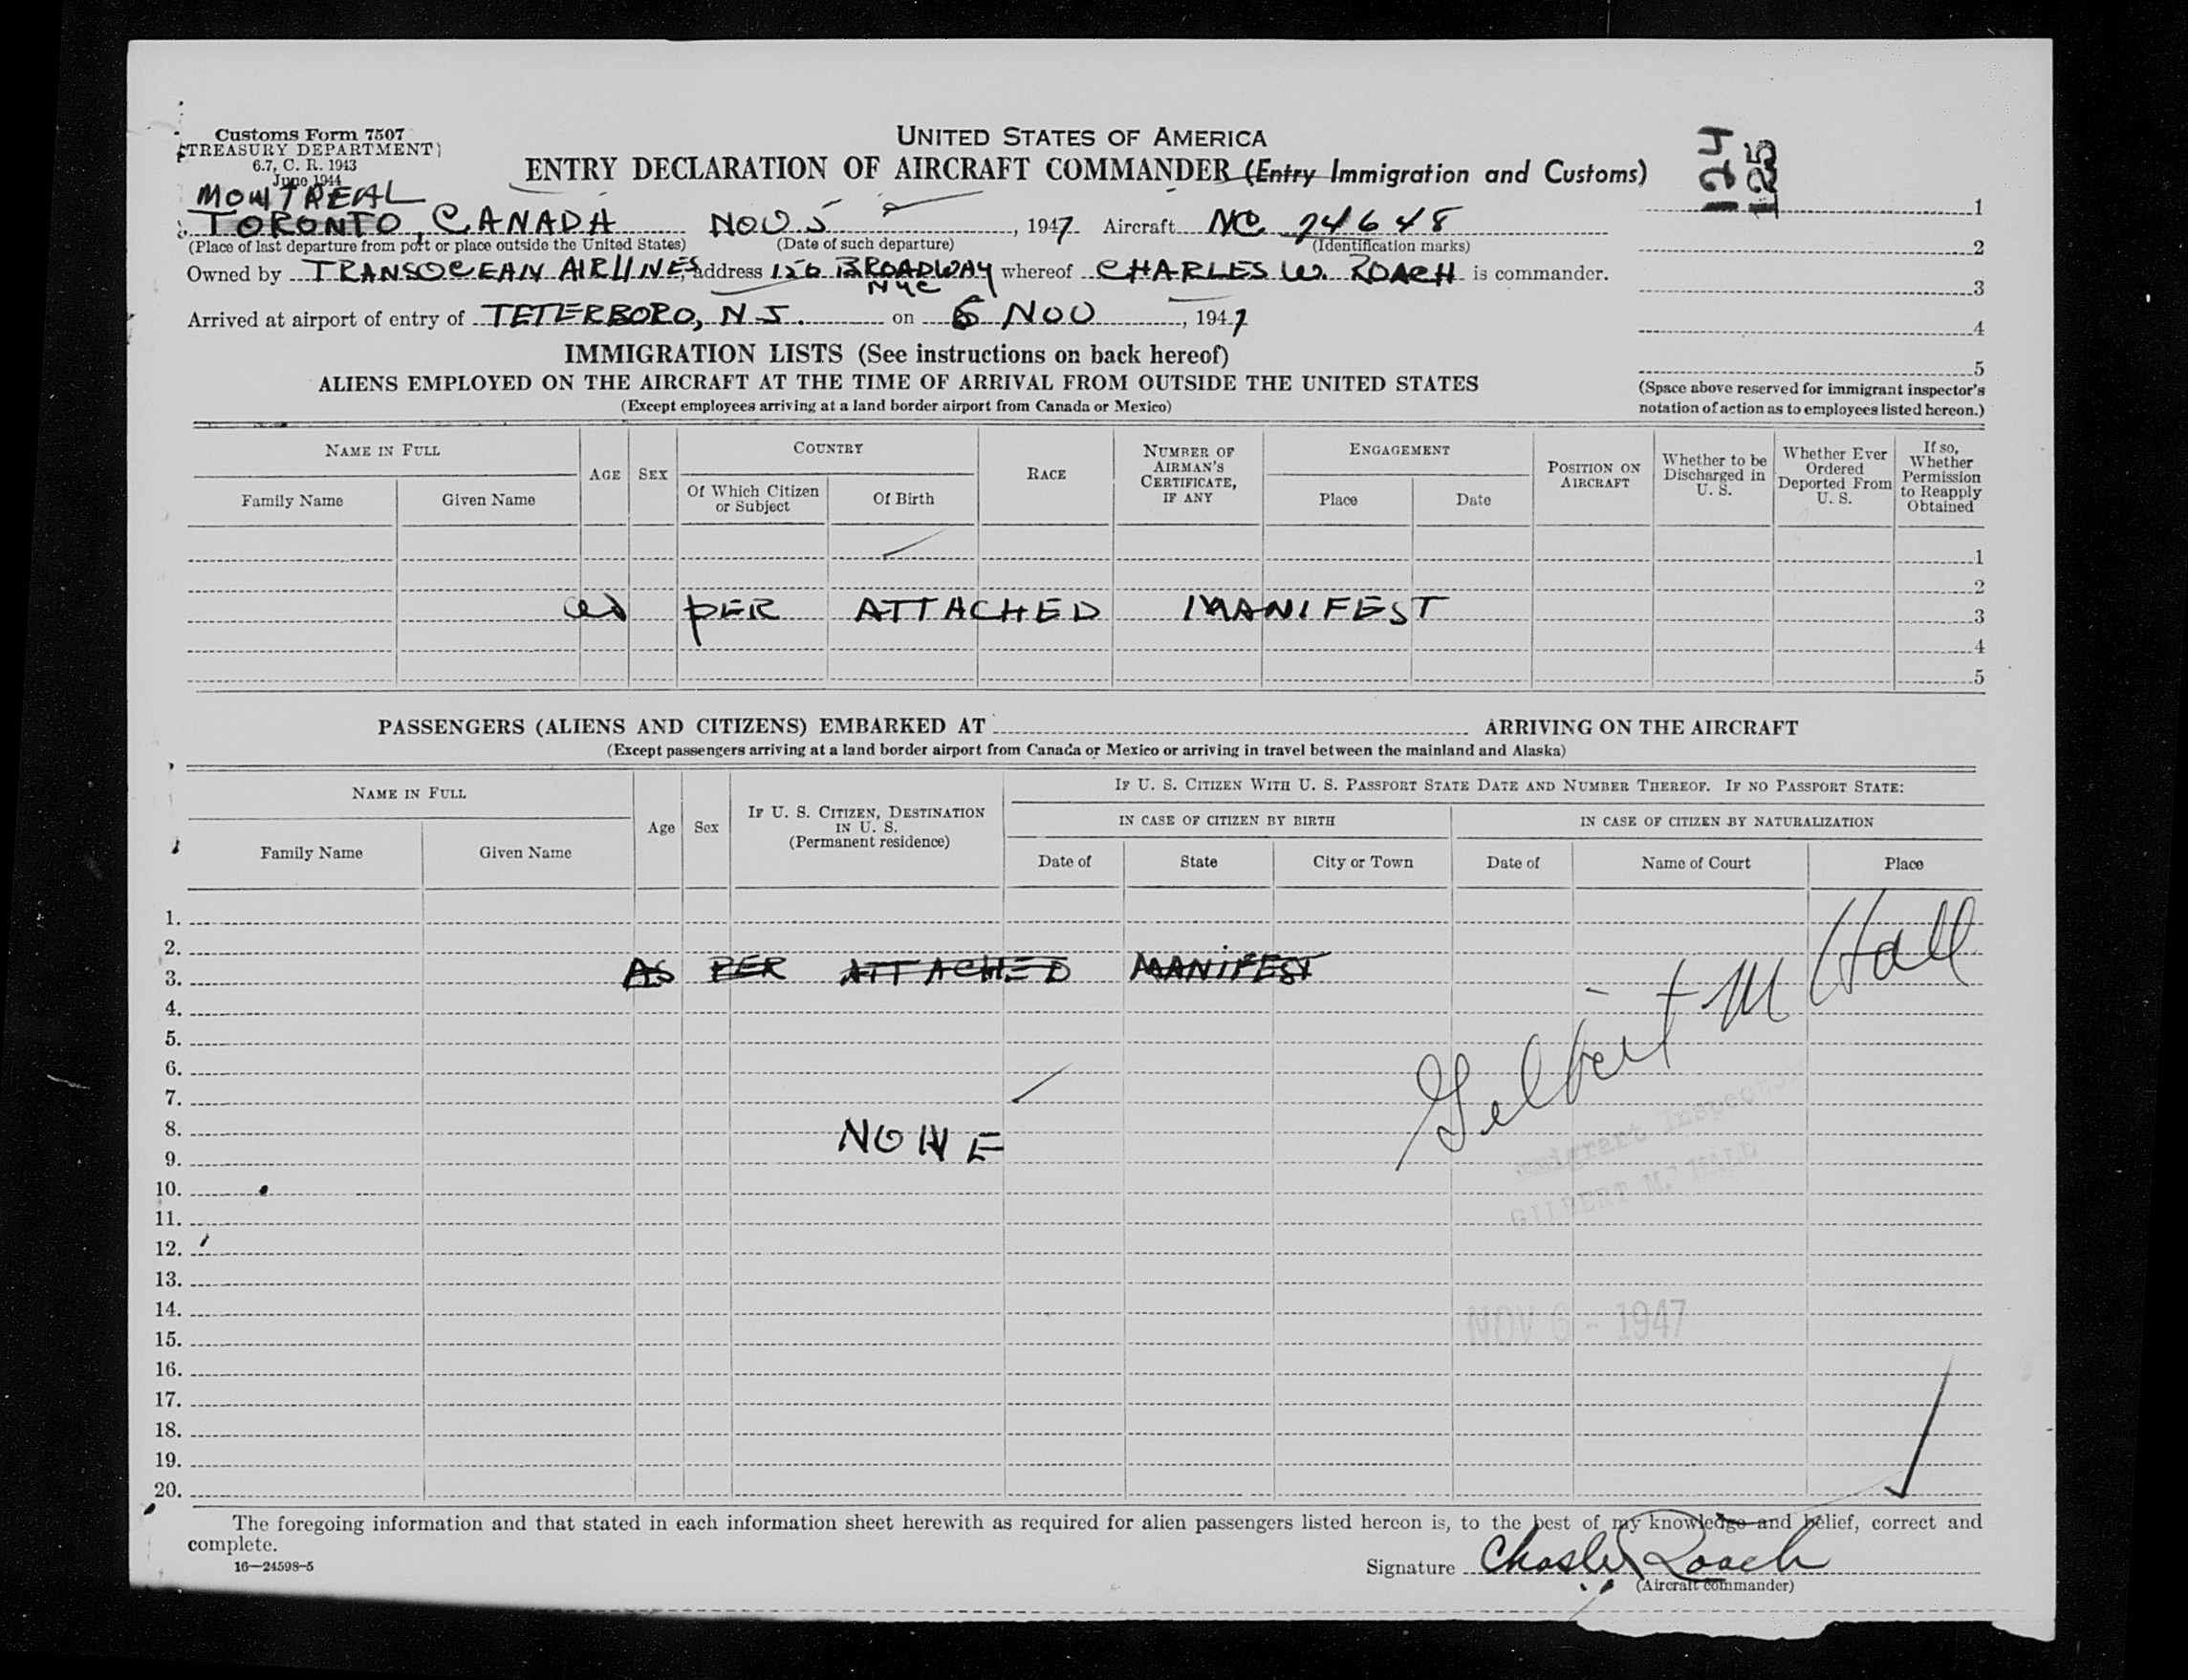 Customs Form 7507
(TREASURY DEPARTMENT)
6.7, C. R. 1943
June 1944
UNITED STATES OF AMERICA
ENTRY DECLARATION OF AIRCRAFT COMMANDER (Entry Immigration and Customs)
124
125
MONTREAL
TORONTO, CANADA NOV 5, 1947 Aircraft NC 74648
(Place of last departure from port or place outside the United States) (Date of such departure) (Identification marks)
Owned by TRANSOCEAN AIRLINES, address 120 BROADWAY whereof CHARLES W. ROACH is commander.
NYC
Arrived at airport of entry of TETERBORO, N.J. on 6 NOV, 1947
1
2
3
4
5
(Space above reserved for immigrant inspector's
notation of action as to employees listed hereon.)
IMMIGRATION LISTS (See instructions on back hereof)
ALIENS EMPLOYED ON THE AIRCRAFT AT THE TIME OF ARRIVAL FROM OUTSIDE THE UNITED STATES
(Except employees arriving at a land border airport from Canada or Mexico)
NAME IN FULL
Family Name
Given Name
AGE
SEX
COUNTRY
Of Which Citizen
or Subject
Of Birth
RACE
NUMBER OF
AIRMAN'S
CERTIFICATE,
IF ANY
ENGAGEMENT
Place
Date
POSITION ON
AIRCRAFT
Whether to be
Discharged in
U. S.
Whether Ever
Ordered
Deported From
U. S.
If so,
Whether
Permission
to Reapply
Obtained
1
2
as PER ATTACHED MANIFEST 3
4
5
PASSENGERS (ALIENS AND CITIZENS) EMBARKED AT ARRIVING ON THE AIRCRAFT
(Except passengers arriving at a land border airport from Canada or Mexico or arriving in travel between the mainland and Alaska)
NAME IN FULL
Family Name
Given Name
Age
Sex
IF U. S. CITIZEN, DESTINATION
IN U. S.
(Permanent residence)
IF U. S. CITIZEN WITH U. S. PASSPORT STATE DATE AND NUMBER THEREOF. IF NO PASSPORT STATE:
IN CASE OF CITIZEN BY BIRTH
Date of
State
City or Town
IN CASE OF CITIZEN BY NATURALIZATION
Date of
Name of Court
Place
1.
2.
3. AS PER ATTACHED MANIFEST
4.
5.
6.
7.
8. NONE
9.
10.
11.
12.
13.
14.
15.
16.
17.
18.
19.
20.
Gilbert M Hall
Immigrant Inspector
GILBERT M. HALL
NOV 6 - 1947
The foregoing information and that stated in each information sheet herewith as required for alien passengers listed hereon is, to the best of my knowledge and belief, correct and
complete.
16—24598-5
Signature Charles Roach
(Aircraft commander)